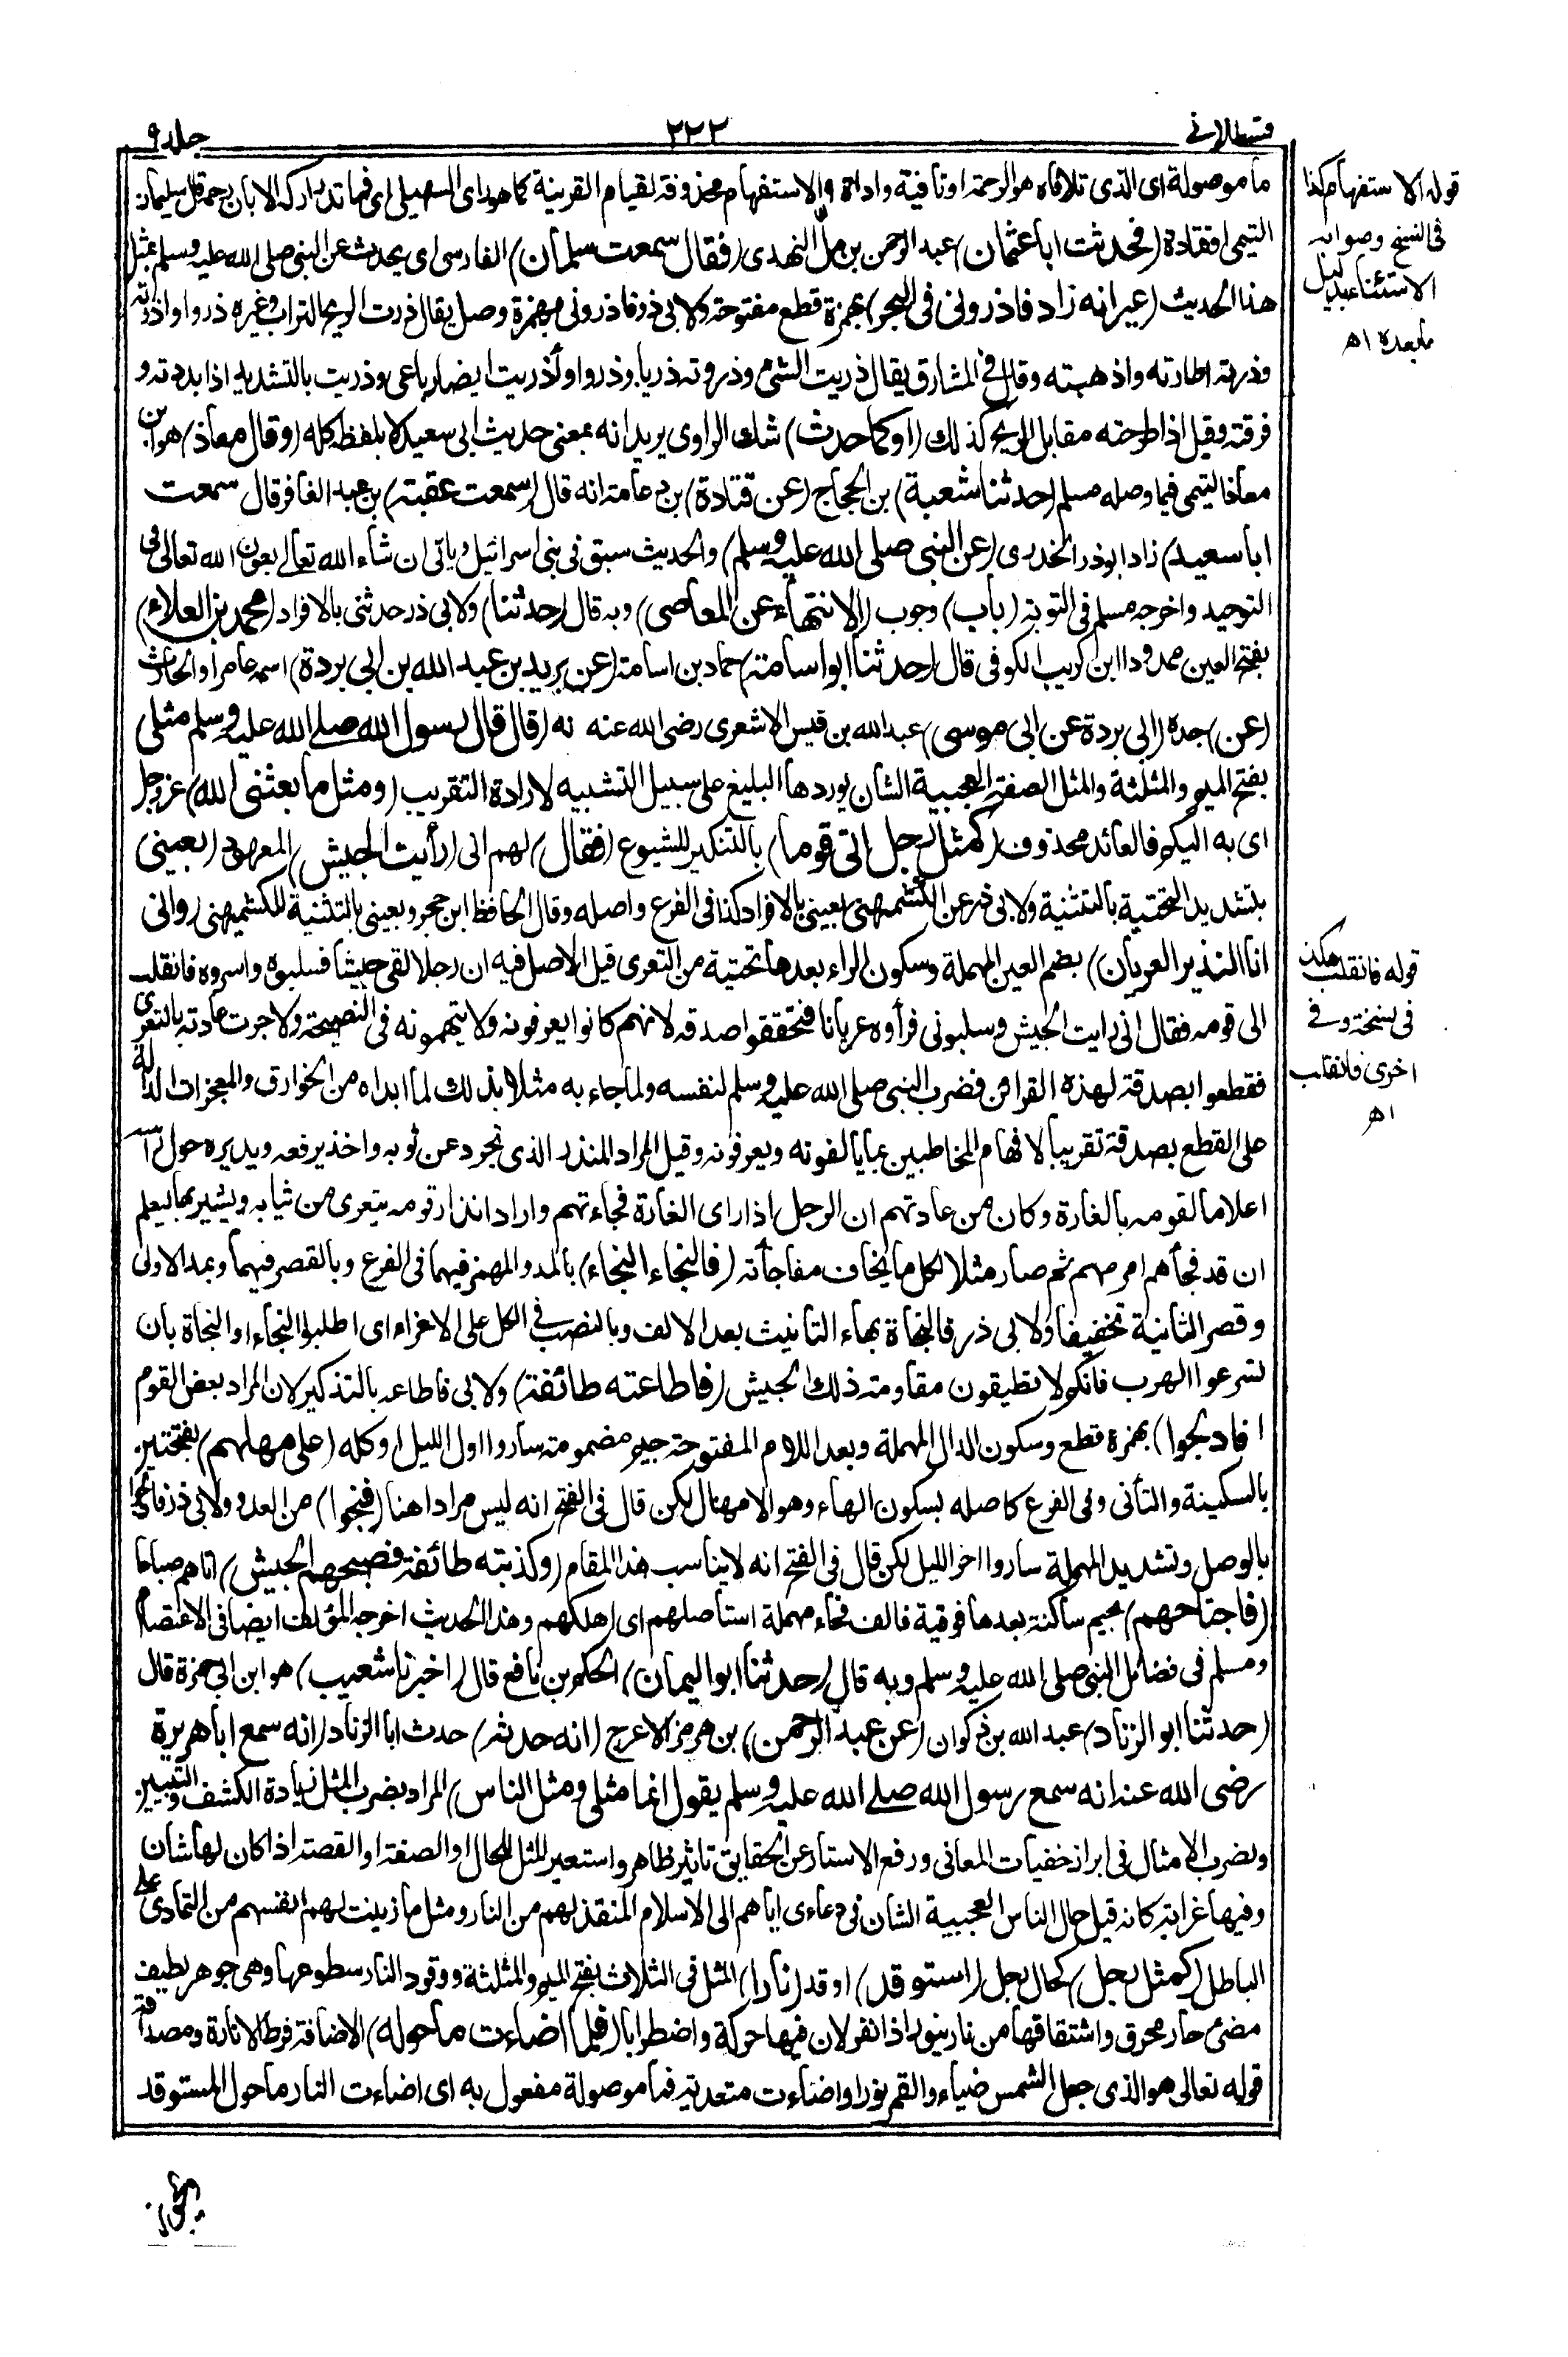 قسطلانى
٢٢٢
جلد ٩
ما موصولة اى الذى تلافاه هو الرحمة او نافية واداة والاستفهام محذوفة لقيام القرينة كما هو راى السهيلى اى فما تداركه الا بان رحمه قال سليمان
التيمى او قتادة (فحدثت ابا عثمان) عبد الرحمن بن مل النهدى (فقال سمعت سلمان) الفارسى اى يحدث عن النبى صلى الله عليه وسلم بمثل
هذا الحديث (غير انه زاد فاذرونى فى البحر) بهمزة قطع مفتوحة ولابى ذر فاذرونى بهمزة وصل يقال ذرت الريح التراب وغيره ذروا واذرته
وذرته اطارته واذهبته وقال فى المشارق يقال ذريت الشئ وذروته ذريا وذروا واذريت ايضا رباعى وذريت بالتشديد اذا بددته و
فرقته وقيل اذا طرحته مقابل الريح كذلك (او كما حدث) شك الراوى يريد انه بمعنى حديث ابى سعيد لا بلفظه كله (وقال معاذ) هو ابن
معاذ التيمى فيما وصله مسلم (حدثنا شعبة) بن الحجاج (عن قتادة) بن دعامة انه قال (سمعت عقبة) بن عبد الغافر قال سمعت
ابا سعيد) زاد ابو ذر الخدرى (عن النبى صلى الله عليه وسلم) والحديث سبق فى بنى اسرائيل وياتى ان شاء الله تعالى بعون الله تعالى فى
التوحيد واخرجه مسلم فى التوبة (باب) وجوب (الانتهاء عن المعاصى) وبه قال (حدثنا) ولابى ذر حدثنى بالافراد (محمد بن العلاء)
بفتح العين ممدودا ابن كريب الكوفى قال (حدثنا ابو اسامة) حماد بن اسامة (عن بريد بن عبد الله بن ابى بردة) اسمه عامر او الحارث
(عن) جده (ابى بردة عن ابى موسى) عبد الله بن قيس الاشعرى رضى الله عنه نه (قال قال رسول الله صلى الله عليه وسلم مثلى
بفتح الميم والمثلثة والمثل الصفة العجيبة الشان يوردها البليغ على سبيل التشبيه لارادة التقريب (ومثل ما بعثنى الله) عز وجل
اى به اليكم فالعائد محذوف (كمثل رجل اتى قوما) بالتنكير للشيوع (فقال) لهم انى (رأيت الجيش) المعهود (بعينى
بتشديد التحتية بالتثنية ولابى ذر عن الكشميهنى بعينى بالافراد كذا فى الفرع واصله وقال الحافظ ابن حجر وبعينى بالتثنية للكشميهنى (وانى
انا النذير العريان) بضم العين المهملة وسكون الراء بعدها تحتية من التعرى قيل الاصل فيه ان رجلا لقى جيشا فسلبوه واسروه فانقلب
الى قومه فقال انى رايت الجيش وسلبونى فرأوه عريانا فتحققوا صدقه لانهم كانوا يعرفونه ولا يتهمونه فى النصيحة ولا جرت عادته بالتعرى
فقطعوا بصدقه لهذه القرائن فضرب النبى صلى الله عليه وسلم لنفسه ولما جاء به مثلا بذلك لما ابداه من الخوارق والمعجزات الدالة
على القطع بصدقه تقريبا لافهام المخاطبين بما يالفونه ويعرفونه وقيل المراد المنذر الذى تجرد عن ثوبه واخذ يرفعه ويديره حول راسه
اعلاما لقومه بالغارة وكان من عادتهم ان الرجل اذا راى الغارة فجاءتهم واراد انذار قومه يتعرى من ثيابه ويشير بها ليعلم
ان قد فجأهم امر مهم ثم صار مثلا لكل ما يخاف مفاجأته (فالنجاء النجاء) بالمد والهمز فيهما فى الفرع وبالقصر فيهما وبمد الاولى
وقصر الثانية تخفيفا ولابى ذر فالنجاة بهاء التانيث بعد الالف وبالنصب فى الكل على الاغراء اى اطلبوا النجاء او النجاة بان
تسرعوا الهرب فانكم لا تطيقون مقاومة ذلك الجيش (فاطاعته طائفة) ولابى فاطاعه بالتذكير لان المراد بعض القوم
(فادلجوا) بهمزة قطع وسكون الدال المهملة وبعد اللام المفتوحة جيم مضمومة ساروا اول الليل او كله (على مهلهم) بفتحتين
بالسكينة والتأنى وفى الفرع كاصله بسكون الهاء وهو الامهال لكن قال فى الفتح انه ليس مرادا هنا (فنجوا) من العدو ولابى ذر فادلجوا
بالوصل وتشديد المهملة ساروا اخر الليل لكن قال فى الفتح انه لا يناسب هذا المقام (وكذبته طائفة فصبحهم الجيش) اتاهم صباحا
(فاجتاحهم) بجيم ساكنة بعدها فوقية فالف فحاء مهملة استأصلهم اى اهلكهم وهذا الحديث اخرجه المؤلف ايضا فى الاعتصام
ومسلم فى فضائل النبى صلى الله عليه وسلم وبه قال (حدثنا ابو اليمان) الحكم بن نافع قال (اخبرنا شعيب) هو ابن ابى حمزة قال
(حدثنا ابو الزناد) عبد الله بن ذكوان (عن عبد الرحمن) بن هرمز الاعرج (انه حدثه) حدث ابا الزناد (انه سمع ابا هريرة
رضى الله عنه انه سمع رسول الله صلى الله عليه وسلم يقول انما مثلى ومثل الناس) المراد بضرب المثل زيادة الكشف والتبيين
ولضرب الامثال فى ابراز خفيات المعانى ورفع الاستار عن الحقايق تاثير ظاهر واستعير المثل للحال او الصفة او القصة اذا كان لها شان
وفيها غرابة كانه قيل حال الناس العجيبة الشان فى دعاءى اياهم الى الاسلام المنقذ لهم من النار ومثل ما زينت لهم انفسهم من التمادى على
الباطل (كمثل رجل) كحال رجل (استوقد) اوقد (نارا) المثل فى الثلاث بفتح الميم والمثلثة ووقود النار سطوعها وهى جوهر لطيف
مضئ حار محرق واشتقاقها من نار ينور اذا نفر لان فيها حركة واضطرابا (فلما اضاءت ما حوله) الاضاءة فرط الانارة ومصداقه
قوله تعالى هو الذى جعل الشمس ضياء والقمر نورا واضاءت متعدية فما موصولة مفعول به اى اضاءت النار ما حول المستوقد
قوله الاستفهام كذا
فى النسخ وصوابه
الاستثناء بدليل
ما بعده اه
قوله فانقلب هكذا
فى نسخة وفى
اخرى فانفلت
اه